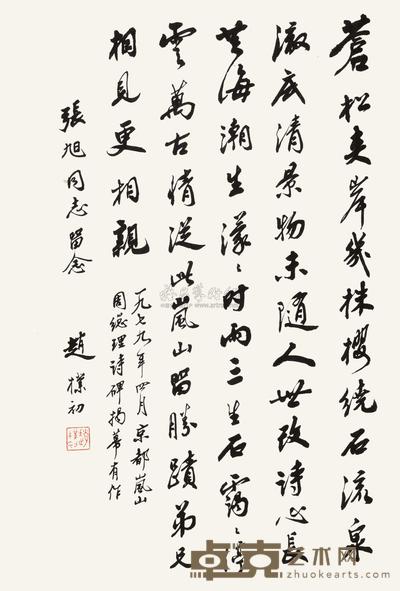 蒼松夾岸幾株櫻繞石流泉
澈底清景物未隨人世改詩心長
共海潮生濛〻時雨三生石靄〻停
雲萬古情從此嵐山留勝蹟弟兄
相見更相親
一九七九年四月京都嵐山
周總理詩碑揭幕有作
張旭同志留念
趙樸初
卓克艺术网
zhuokearts.com